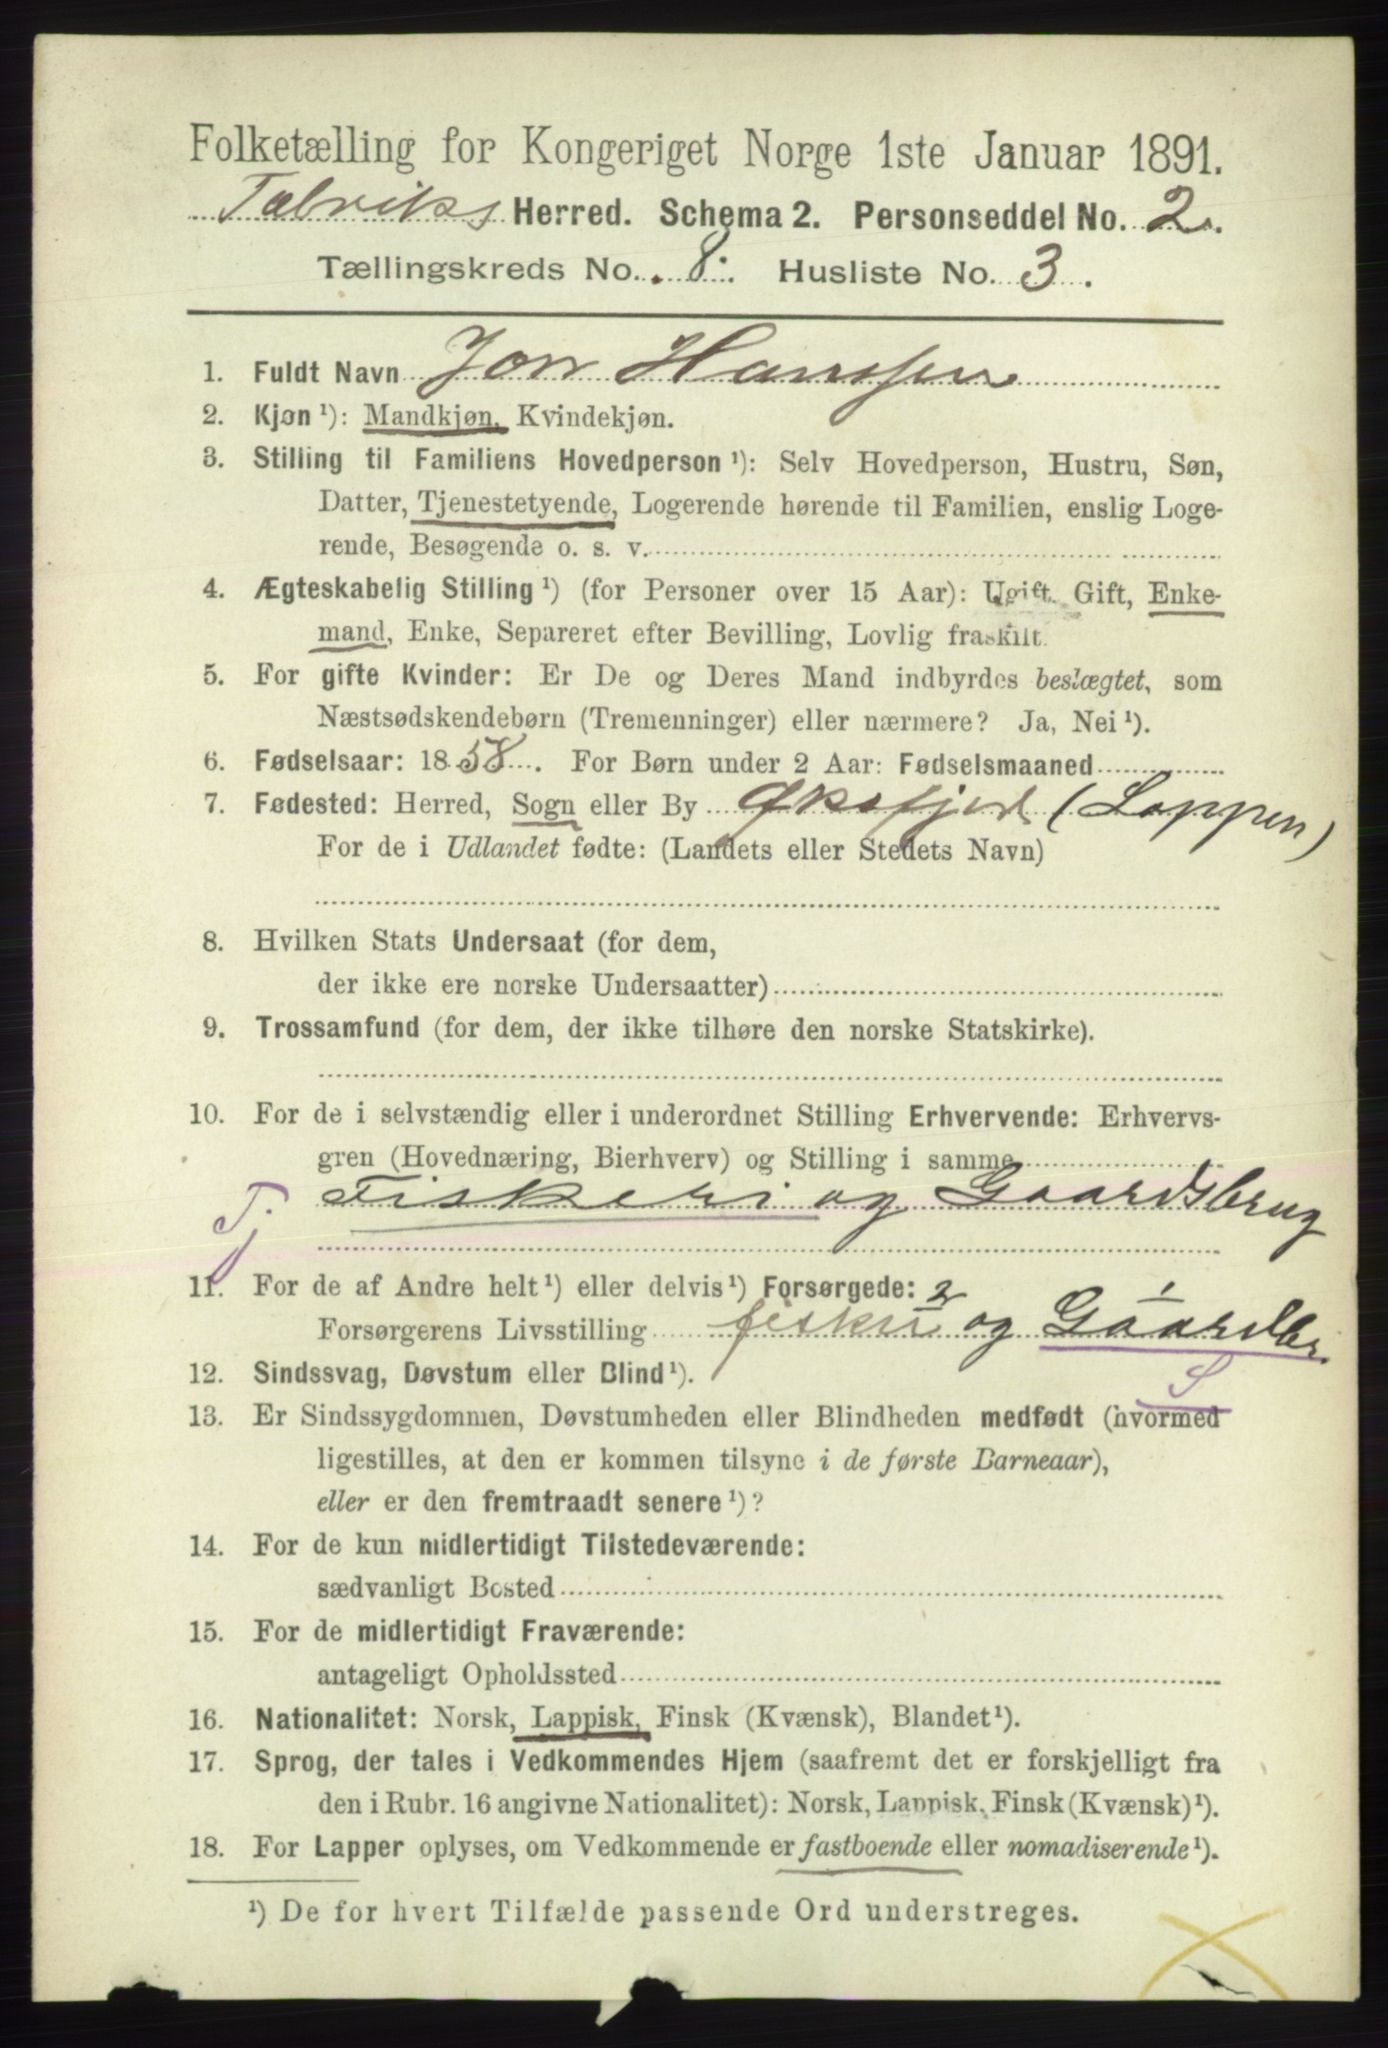 Folketælling for Kongeriget Norge 1ste Januar 1891.
Talviks Herred. Schema 2. Personseddel No. 2.
Tællingskreds No. 8. Husliste No. 3.
1. Fuldt Navn Jon Hanssen
2. Kjøn ¹): Mandkjøn, Kvindekjøn.
3. Stilling til Familiens Hovedperson ¹): Selv Hovedperson, Hustru, Søn,
Datter, Tjenestetyende, Logerende hørende til Familien, enslig Loge-
rende, Besøgende o. s. v.
4. Ægteskabelig Stilling ¹) (for Personer over 15 Aar): Ugift, Gift, Enke-
mand, Enke, Separeret efter Bevilling, Lovlig fraskilt.
5. For gifte Kvinder: Er De og Deres Mand indbyrdes beslægtet, som
Næstsødskendebørn (Tremenninger) eller nærmere? Ja, Nei ¹).
6. Fødselsaar: 1858. For Børn under 2 Aar: Fødselsmaaned
7. Fødested: Herred, Sogn eller By Øksfjord (Loppen)
For de i Udlandet fødte: (Landets eller Stedets Navn)
8. Hvilken Stats Undersaat (for dem,
der ikke ere norske Undersaatter)
9. Trossamfund (for dem, der ikke tilhøre den norske Statskirke).
10. For de i selvstændig eller i underordnet Stilling Erhvervende: Erhvervs-
gren (Hovednæring, Bierhverv) og Stilling i samme
Tj Fiskeri og Gaardsbrug
11. For de af Andre helt ¹) eller delvis ¹) Forsørgede: 2 1
Forsørgerens Livsstilling fisker og Gaardbr.
S
12. Sindssvag, Døvstum eller Blind ¹).
13. Er Sindssygdommen, Døvstumheden eller Blindheden medfødt (hvormed
ligestilles, at den er kommen tilsyne i de første Barneaar),
eller er den fremtraadt senere ¹)?
14. For de kun midlertidigt Tilstedeværende:
sædvanligt Bosted
15. For de midlertidigt Fraværende:
antageligt Opholdssted
16. Nationalitet: Norsk, Lappisk, Finsk (Kvænsk), Blandet ¹).
17. Sprog, der tales i Vedkommendes Hjem (saafremt det er forskjelligt fra
den i Rubr. 16 angivne Nationalitet): Norsk, Lappisk, Finsk (Kvænsk) ¹).
18. For Lapper oplyses, om Vedkommende er fastboende eller nomadiserende ¹).
¹) De for hvert Tilfælde passende Ord understreges.